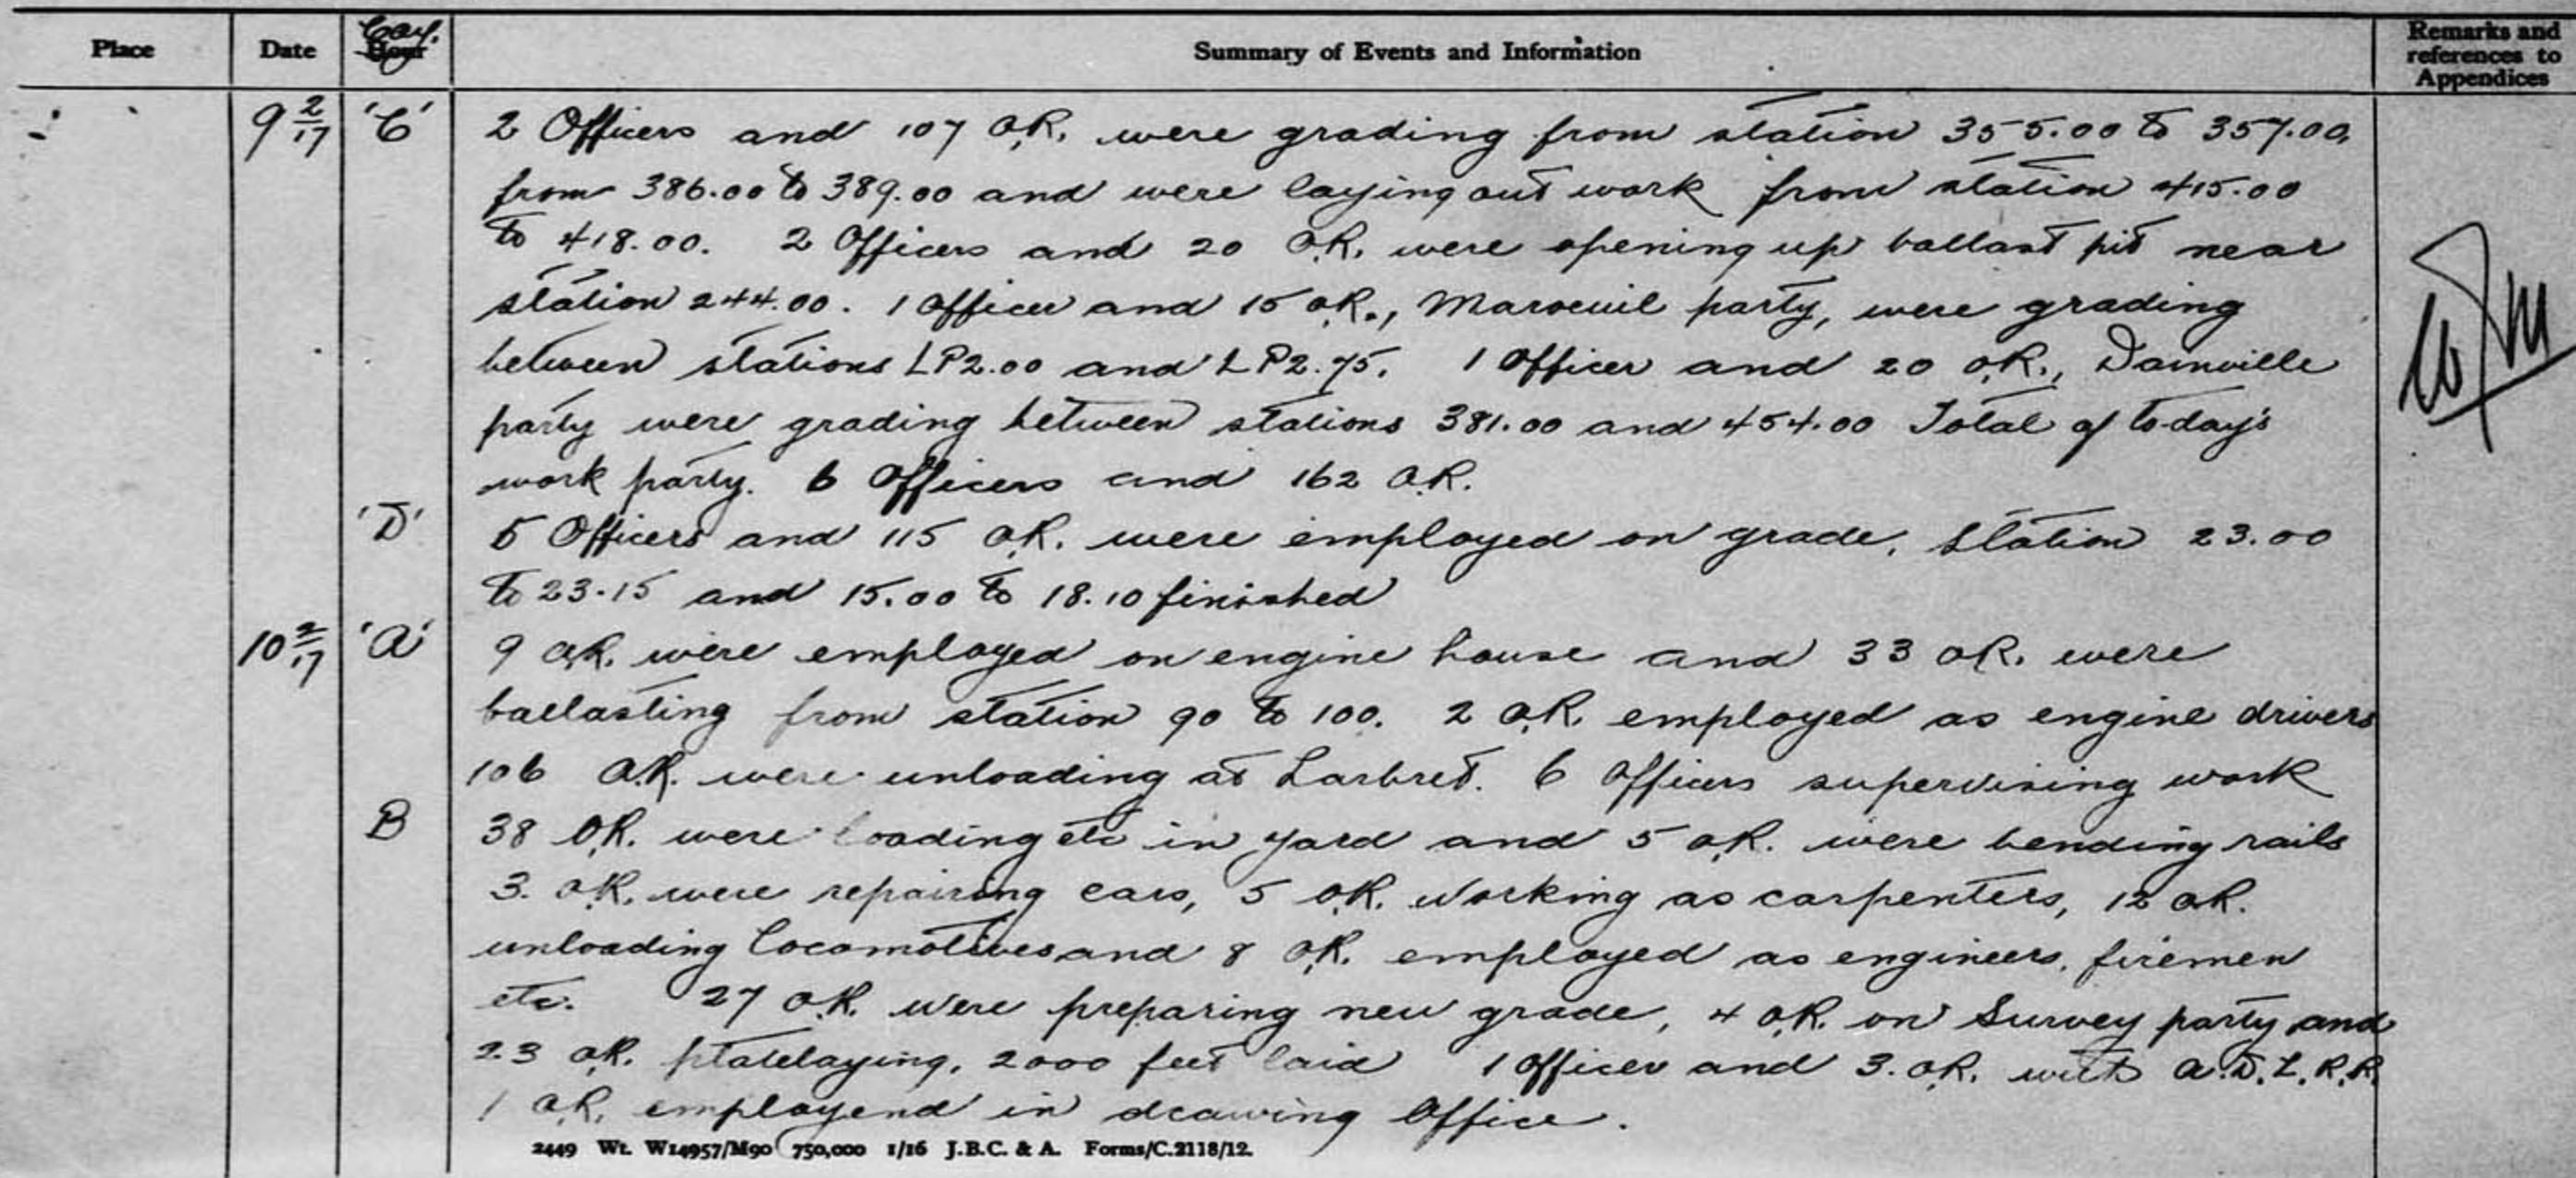 Place Date Hour Coy. Summary of Events and Information Remarks and references to Appendices
9 2/17 'C' 2 Officers and 107 O.R. were grading from station 355.00 to 357.00,
from 386.00 to 389.00 and were laying out work from station 415.00
to 418.00. 2 Officers and 20 O.R. were opening up ballast pit near
station 244.00. 1 Officer and 15 O.R., Maroeuil party, were grading
between stations LP2.00 and LP2.75. 1 Officer and 20 O.R., Dainville
party were grading between stations 381.00 and 454.00 Total of to-day's
work party. 6 Officers and 162 O.R.
'D' 5 Officers and 115 O.R. were employed on grade, station 23.00
to 23.15 and 15.00 to 18.10 finished
10 2/17 'A' 9 O.R. were employed on engine house and 33 O.R. were
ballasting from station 90 to 100. 2 O.R. employed as engine drivers
106 O.R. were unloading at Larbret. 6 Officers supervising work
B 38 O.R. were loading etc in yard and 5 O.R. were bending rails
3. O.R. were repairing cars, 5 O.R. working as carpenters, 12 O.R.
unloading locomotives and 8 O.R. employed as engineers, firemen
etc. 27 O.R. were preparing new grade, 4 O.R. on Survey party and
23 O.R. platelaying, 2000 feet laid 1 Officer and 3. O.R. with A.D.L.R.R.
1 O.R. employend in drawing Office.
2449 Wt. W14957/M90 750,000 1/16 J.B.C. & A. Forms/C.2118/12.